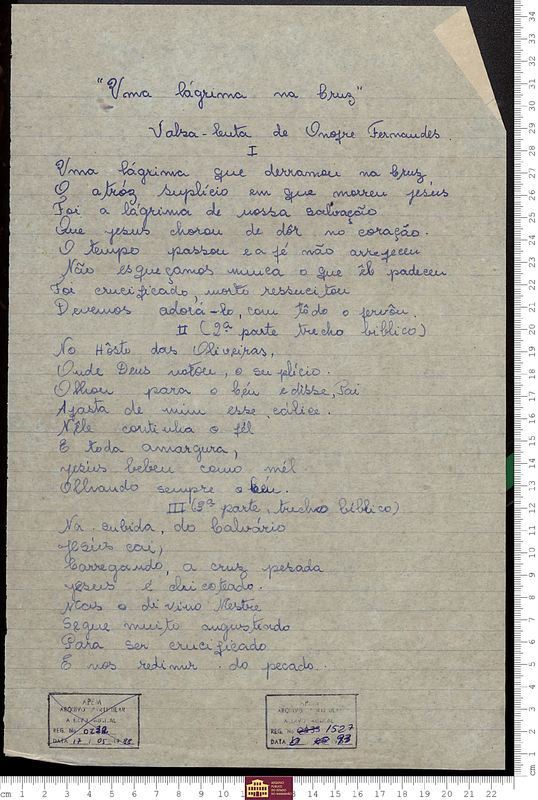 "Uma lágrima na Cruz"
Valsa-lenta de Onofre Fernandes.
I
Uma lágrima que derramou na Cruz
O atróz suplício em que morreu jesus
Foi a lágrima de nossa salvação
Que jesus chorou de dôr no coração.
O tempo passou e a fé não arrefeceu
Não esqueçamos nunca o que Êle padeceu
Foi crucificado, morto ressucitou
Devemos adorá-lo, com tôdo o fervôr.
II (2ª parte trecho biblico)
No Hôsto das Oliveiras,
Onde Deus notou, o seu plício.
Olhou para o Céu e disse, Pai
Afasta de mim esse cálice.
Nêle continha o fél
E toda amargura,
jesus bebeu como mél
Olhando sempre o Céu.
III (3ª parte, trecho bíblico)
Na subida, do Calvário
Jesus cai,
Carregando, a cruz pesada
jesus é chicoteado.
Mas o divino Mestre
Segue muito angustiado
Para ser crucificado
E nos redimir do pecado.
APEM
ARQUIVO PARTICULAR
ACERVO MUSICAL
REG. No 0232
DATA 17 / 05 / 88
ARQUIVO PARTICULAR
ACERVO MUSICAL
REG. No 0435 1527
DATA 93
cm 1 2 3 4 5 6 7 8 9 10 11 12 13 14 15 16 17 18 19 20 21 22
ARQUIVO PÚBLICO DO ESTADO DO MARANHÃO